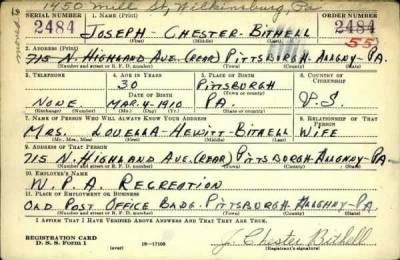 moved to 1450 Mill St, Wilkinsburg Pa
SERIAL NUMBER 1. NAME (Print) ORDER NUMBER
2484 JOSEPH - CHESTER - BITHELL 2484
(First) (Middle) (Last) 55
2. ADDRESS (Print)
715 N. HIGHLAND AVE. (REAR) PITTSBURGH. ALLGHNY - PA.
(Number and street or R. F. D. number) (Town) (County) (State)
3. TELEPHONE 4. AGE IN YEARS 5. PLACE OF BIRTH 6. COUNTRY OF CITIZENSHIP
30 PITTSBURGH
(Town or county)
DATE OF BIRTH
NONE. MAR. 4 - 1910 PA. U.S.
(Exchange) (No.) (Mo.) (Day) (Yr.) (State or country)
7. NAME OF PERSON WHO WILL ALWAYS KNOW YOUR ADDRESS 8. RELATIONSHIP OF THAT PERSON
MRS. LOUELLA - HEWITT - BITHELL WIFE
(Mr., Mrs., Miss) (First) (Middle) (Last)
9. ADDRESS OF THAT PERSON
715 N. HIGHLAND AVE. (REAR) PITTSBURGH ALLGHNY - PA -
(Number and street or R. F. D. number) (Town) (County) (State)
10. EMPLOYER'S NAME
W. P. A. RECREATION
11. PLACE OF EMPLOYMENT OR BUSINESS
OLD POST OFFICE BLDG. PITTSBURGH ALLGHNY - PA.
(Number and street or R. F. D. number) (Town) (County) (State)
I AFFIRM THAT I HAVE VERIFIED ABOVE ANSWERS AND THAT THEY ARE TRUE.
REGISTRATION CARD
D. S. S. Form 1 (over) 16—17105 J. Chester Bithell
(Registrant's signature)